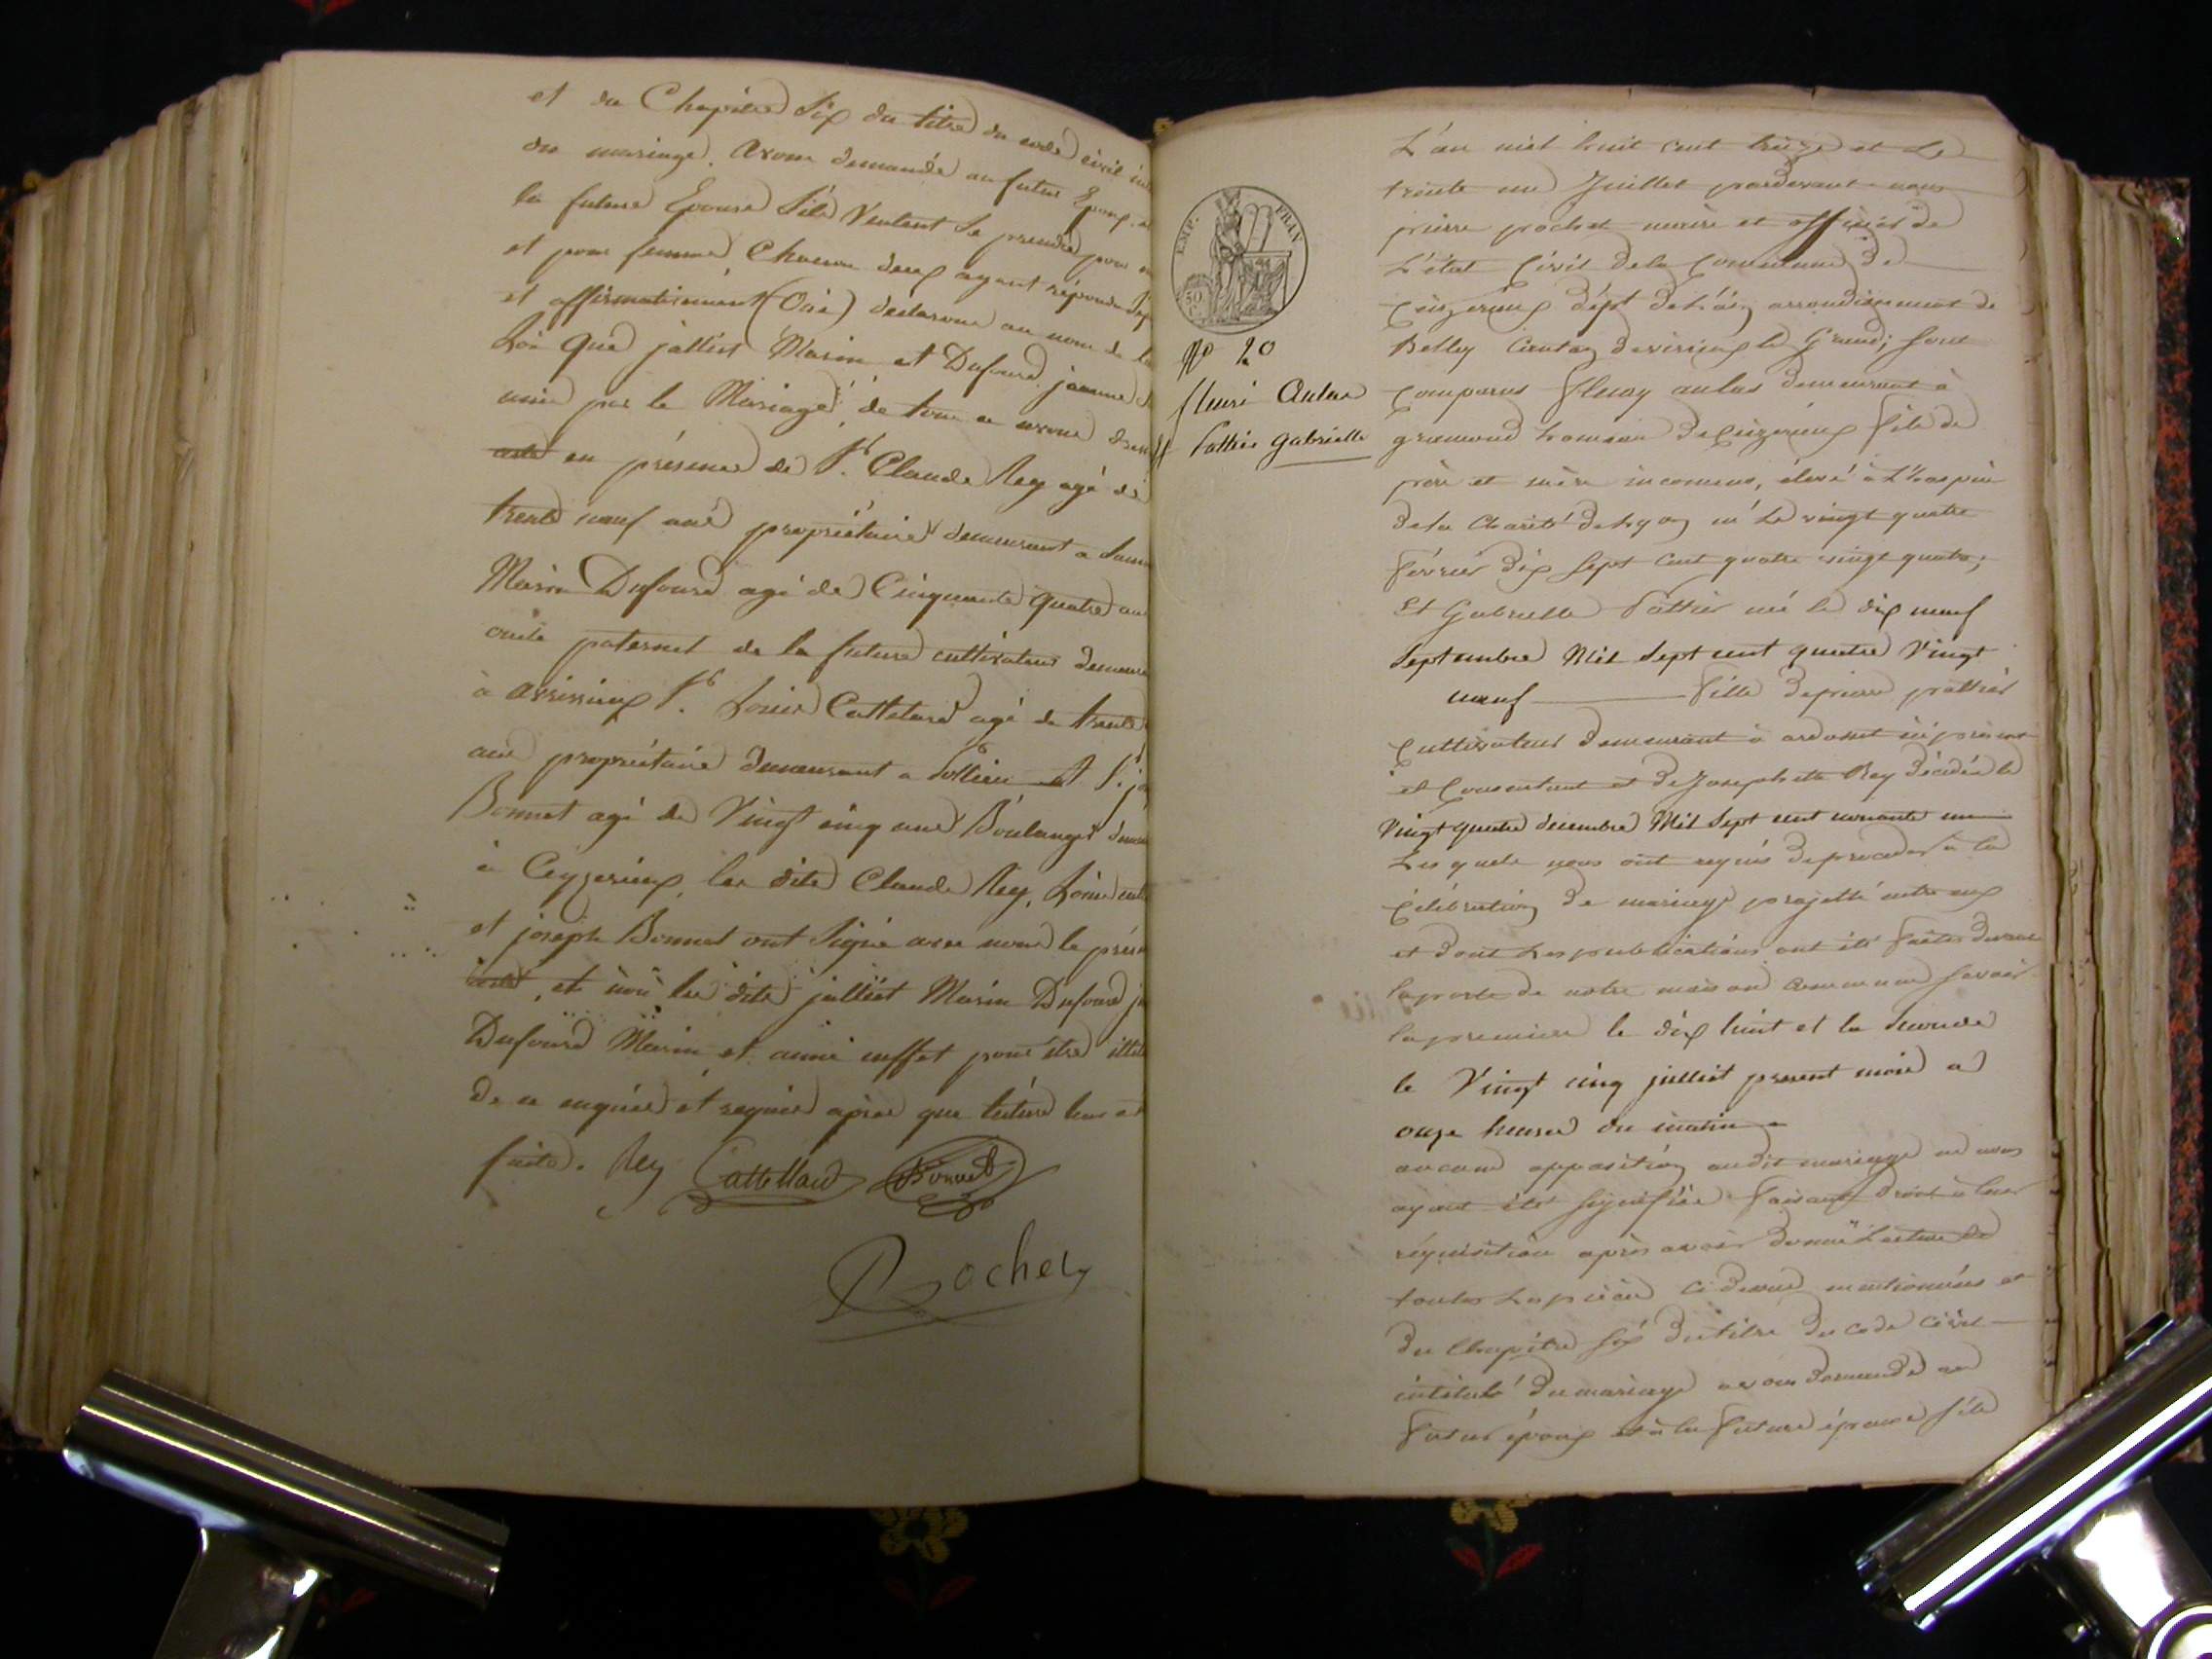 et du Chapitre Six du titre du code civil
du mariage. avons demandé au futur Epoux
la future Epouse s'ils veulent se prendre pour
et pour femme Chacun deux ayant répondu
et affirmativement (Oui) declarons au nom de la
Loi que jalliet Marin et Dufourd jeanne
unis par le Mariage, de tout ce avons
acte en présence de Sr. Claude Rey agé de
trente neuf ans propriétaire demeurant a
Marin Dufourd agé de Cinquante quatre
oncle paternel de la future cultivateur
à arvirieux Sr. Louis Cattelard agé de trente
ans propriétaire demeurant a Sr.
Bonnet agé de Vingt cinq ans Boulanger
à Ceyzerieux, les dits Claude Rey, Louis
et joseph Bonnet ont signé avec nous le
acte, et non les dits jalliet Marin Dufourd
Dufourd Marin et pour être
de ce enquis et requis après que lecture leur
faite. Rey Cattellard Bonnet
Pochet
EMP. FRAN.
50
C.
No 20
fleuri Aulas
Pottier gabrielle
L'an mil huit cent treize et Le
trente un Juillet pardevant nous
pierre pochet maire et officier de
L'état Civil de la Commune de
Ceizerieux dépt de L'ain arrondissement de
Belley Canton de virieux le Grand; sont
Comparus fleury aulas demeurant à
hameau de Ceizerieux fils de
père et mère inconnus, élevé à L'hospice
de la Charité de Lyon né Le vingt quatre
février dix sept cent quatre vingt quatre;
Et Gabrielle Pottier née le dix neuf
Septembre Mil Sept cent quatre Vingt
neuf fille de pierre pottier
Cultivateur demeurant à ardosset ici présent
et Consentant et de Josephette Rey décédée le
Vingt quatre decembre Mil Sept cent nonante un
Lesquels nous ont requis de proceder à la
Célébration de mariage projetté entre eux
et dont Les publications ont été faites devant
la porte de notre maison commune savoir
la premiere le dix huit et la seconde
le Vingt cinq julliet present mois a
onze heures du matin
aucune opposition audit mariage ne nous
ayant été signifiée faisant droit à leur
réquisition après avoir donné Lecture de
toutes Les pieces ci devant mentionnées et
du Chapitre six du titre du code civil
intitulé du mariage avons demandé au
futur époux et à la future épouse s'ils